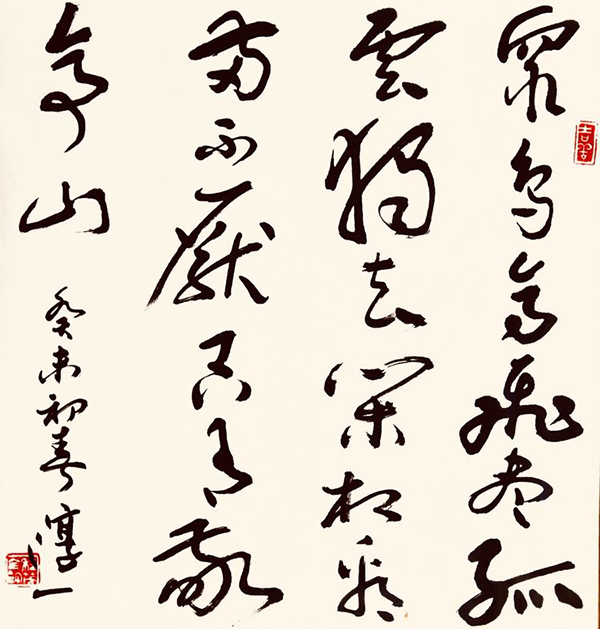 眾鳥高飛盡孤
雲獨去閒相看
兩不厭只有敬
亭山
癸未初春淳一